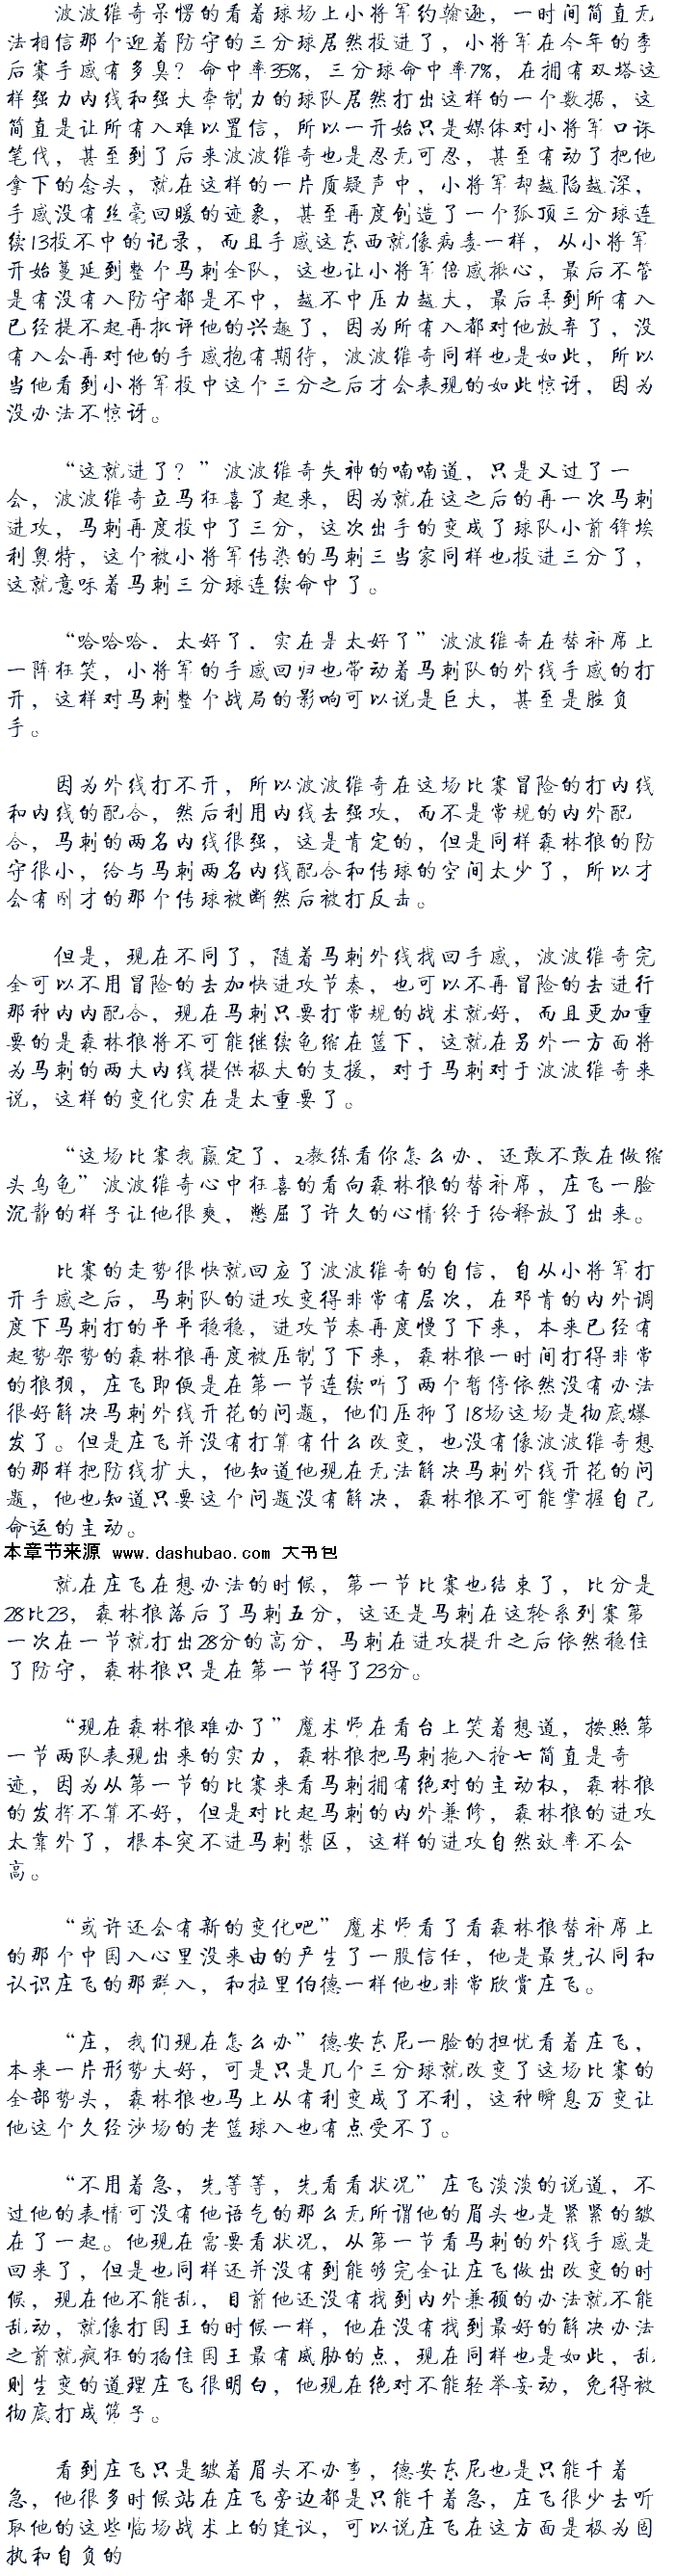 波波维奇呆愣的看着球场上小将军约翰逊，一时间简直无
法相信那个迎着防守的三分球居然投进了，小将军在今年的季
后赛手感有多臭？命中率35%，三分球命中率7%，在拥有双塔这
样强力内线和强大牵制力的球队居然打出这样的一个数据，这
简直是让所有人难以置信，所以一开始只是媒体对小将军口诛
笔伐，甚至到了后来波波维奇也是忍无可忍，甚至有动了把他
拿下的念头，就在这样的一片质疑声中，小将军却越陷越深，
手感没有丝毫回暖的迹象，甚至再度创造了一个弧顶三分球连
续13投不中的记录，而且手感这东西就像病毒一样，从小将军
开始蔓延到整个马刺全队，这也让小将军倍感揪心，最后不管
是有没有人防守都是不中，越不中压力越大，最后弄到所有人
已经提不起再批评他的兴趣了，因为所有人都对他放弃了，没
有人会再对他的手感抱有期待，波波维奇同样也是如此，所以
当他看到小将军投中这个三分之后才会表现的如此惊讶，因为
没办法不惊讶。
“这就进了？”波波维奇失神的喃喃道，只是又过了一
会，波波维奇立马狂喜了起来，因为就在这之后的再一次马刺
进攻，马刺再度投中了三分，这次出手的变成了球队小前锋埃
利奥特，这个被小将军传染的马刺三当家同样也投进三分了，
这就意味着马刺三分球连续命中了。
“哈哈哈．太好了．实在是太好了”波波维奇在替补席上
一阵狂笑，小将军的手感回归也带动着马刺队的外线手感的打
开，这样对马刺整个战局的影响可以说是巨大，甚至是胜负
手。
因为外线打不开，所以波波维奇在这场比赛冒险的打内线
和内线的配合，然后利用内线去强攻，而不是常规的内外配
合，马刺的两名内线很强，这是肯定的，但是同样森林狼的防
守很小，给与马刺两名内线配合和传球的空间太少了，所以才
会有刚才的那个传球被断然后被打反击。
但是，现在不同了，随着马刺外线找回手感，波波维奇完
全可以不用冒险的去加快进攻节奏，也可以不再冒险的去进行
那种内内配合，现在马刺只要打常规的战术就好，而且更加重
要的是森林狼将不可能继续龟缩在篮下，这就在另外一方面将
为马刺的两大内线提供极大的支援，对于马刺对于波波维奇来
说，这样的变化实在是太重要了。
“这场比赛我赢定了．z教练看你怎么办．还敢不敢在做缩
头乌龟”波波维奇心中狂喜的看向森林狼的替补席，庄飞一脸
沉静的样子让他很爽，憋屈了许久的心情终于给释放了出来。
比赛的走势很快就回应了波波维奇的自信，自从小将军打
开手感之后，马刺队的进攻变得非常有层次，在邓肯的内外调
度下马刺打的平平稳稳，进攻节奏再度慢了下来，本来已经有
起势架势的森林狼再度被压制了下来，森林狼一时间打得非常
的狼狈，庄飞即便是在第一节连续听了两个暂停依然没有办法
很好解决马刺外线开花的问题，他们压抑了18场这场是彻底爆
发了。但是庄飞并没有打算有什么改变，也没有像波波维奇想
的那样把防线扩大，他知道他现在无法解决马刺外线开花的问
题，他也知道只要这个问题没有解决，森林狼不可能掌握自己
命运的主动。
本章节来源 www.dashubao.com 大书包
就在庄飞在想办法的时候，第一节比赛也结束了，比分是
28比23，森林狼落后了马刺五分，这还是马刺在这轮系列赛第
一次在一节就打出28分的高分，马刺在进攻提升之后依然稳住
了防守，森林狼只是在第一节得了23分。
“现在森林狼难办了”魔术师在看台上笑着想道，按照第
一节两队表现出来的实力，森林狼把马刺拖入抢七简直是奇
迹，因为从第一节的比赛来看马刺拥有绝对的主动权，森林狼
的发挥不算不好，但是对比起马刺的内外兼修，森林狼的进攻
太靠外了，根本突不进马刺禁区，这样的进攻自然效率不会
高。
“或许还会有新的变化吧”魔术师看了看森林狼替补席上
的那个中国人心里没来由的产生了一股信任，他是最先认同和
认识庄飞的那群人，和拉里伯德一样他也非常欣赏庄飞。
“庄，我们现在怎么办”德安东尼一脸的担忧看着庄飞，
本来一片形势大好，可是只是几个三分球就改变了这场比赛的
全部势头，森林狼也马上从有利变成了不利，这种瞬息万变让
他这个久经沙场的老篮球人也有点受不了。
“不用着急，先等等，先看看状况”庄飞淡淡的说道，不
过他的表情可没有他语气的那么无所谓他的眉头也是紧紧的皱
在了一起。他现在需要看状况，从第一节看马刺的外线手感是
回来了，但是也同样还并没有到能够完全让庄飞做出改变的时
候，现在他不能乱，目前他还没有找到内外兼顾的办法就不能
乱动，就像打国王的时候一样，他在没有找到最好的解决办法
之前就疯狂的掐住国王最有威胁的点，现在同样也是如此，乱
则生变的道理庄飞很明白，他现在绝对不能轻举妄动，免得被
彻底打成筛子。
看到庄飞只是皱着眉头不办事，德安东尼也是只能干着
急，他很多时候站在庄飞旁边都是只能干着急，庄飞很少去听
取他的这些临场战术上的建议，可以说庄飞在这方面是极为固
执和自负的